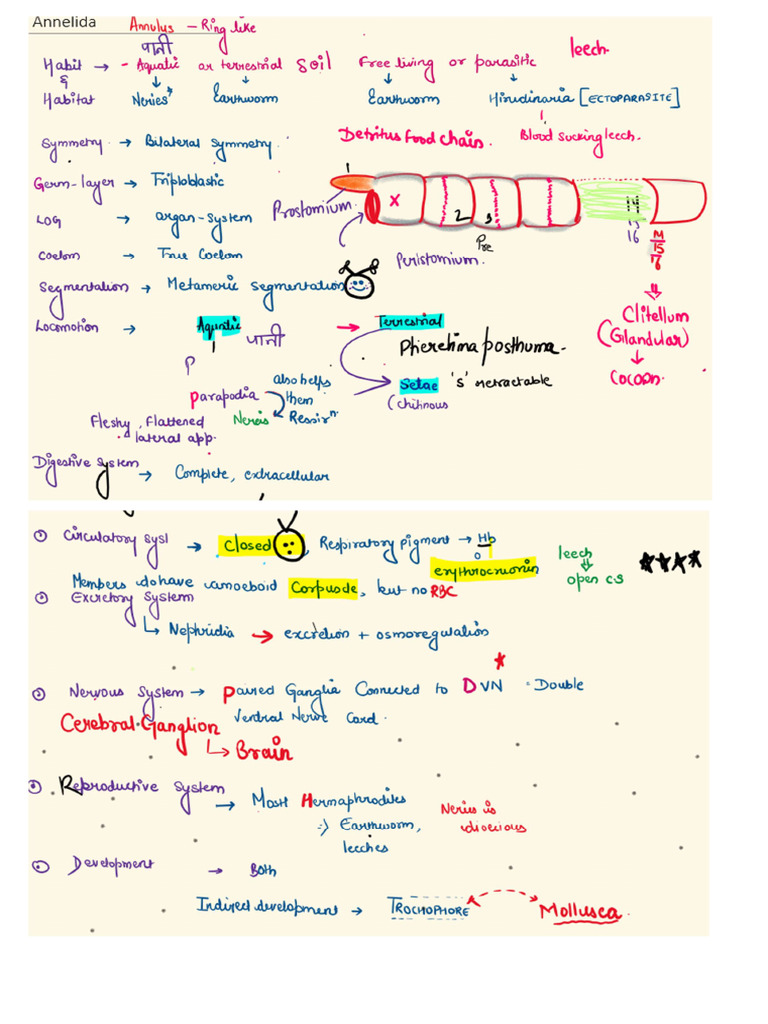 Annelida
Annulus - Ring like
पानी
Habit → - Aquatic or terrestrial soil Free living or parasitic leech.
&
Habitat Neries* Earthworm Earthworm Hirudinaria [ECTOPARASITE]
Symmetry → Bilateral symmetry. Detritus food chain. Blood sucking leech.
1
Germ-layer → Triploblastic
Prostomium. X 2 3 14
LOG → organ-system
15
16 M/15
7
Pre
Coelom → True Coelom Peristomium.
Segmentation → Metameric segmentation
Clitellum
(Glandular)
Cocoon.
Locomotion → Aquatic पानी → Terrestrial
Pheretima posthuma.
P
also helps
them
Respirⁿ.
Setae 'S' retractable
(chitinous
parapodia
Nereis
Fleshy, flattened
lateral app.
Digestive System → Complete, extracellular
Circulatory syst → Closed, Respiratory pigment → Hb
erythrocruorin
leech
open cs
Members do have amoeboid Corpusde, but no RBC
Excretory System
Nephridia → excretion + osmoregulation
Nervous System → Paired Ganglia Connected to DVN · Double
Ventral Nerve Cord.
Cerebral Ganglion
Brain
Reproductive System → Most Hermaphrodites
:) Earthworm,
leeches
Neries is
dioecious
Development → Both
Indirect development → TROCHOPHORE Mollusca.